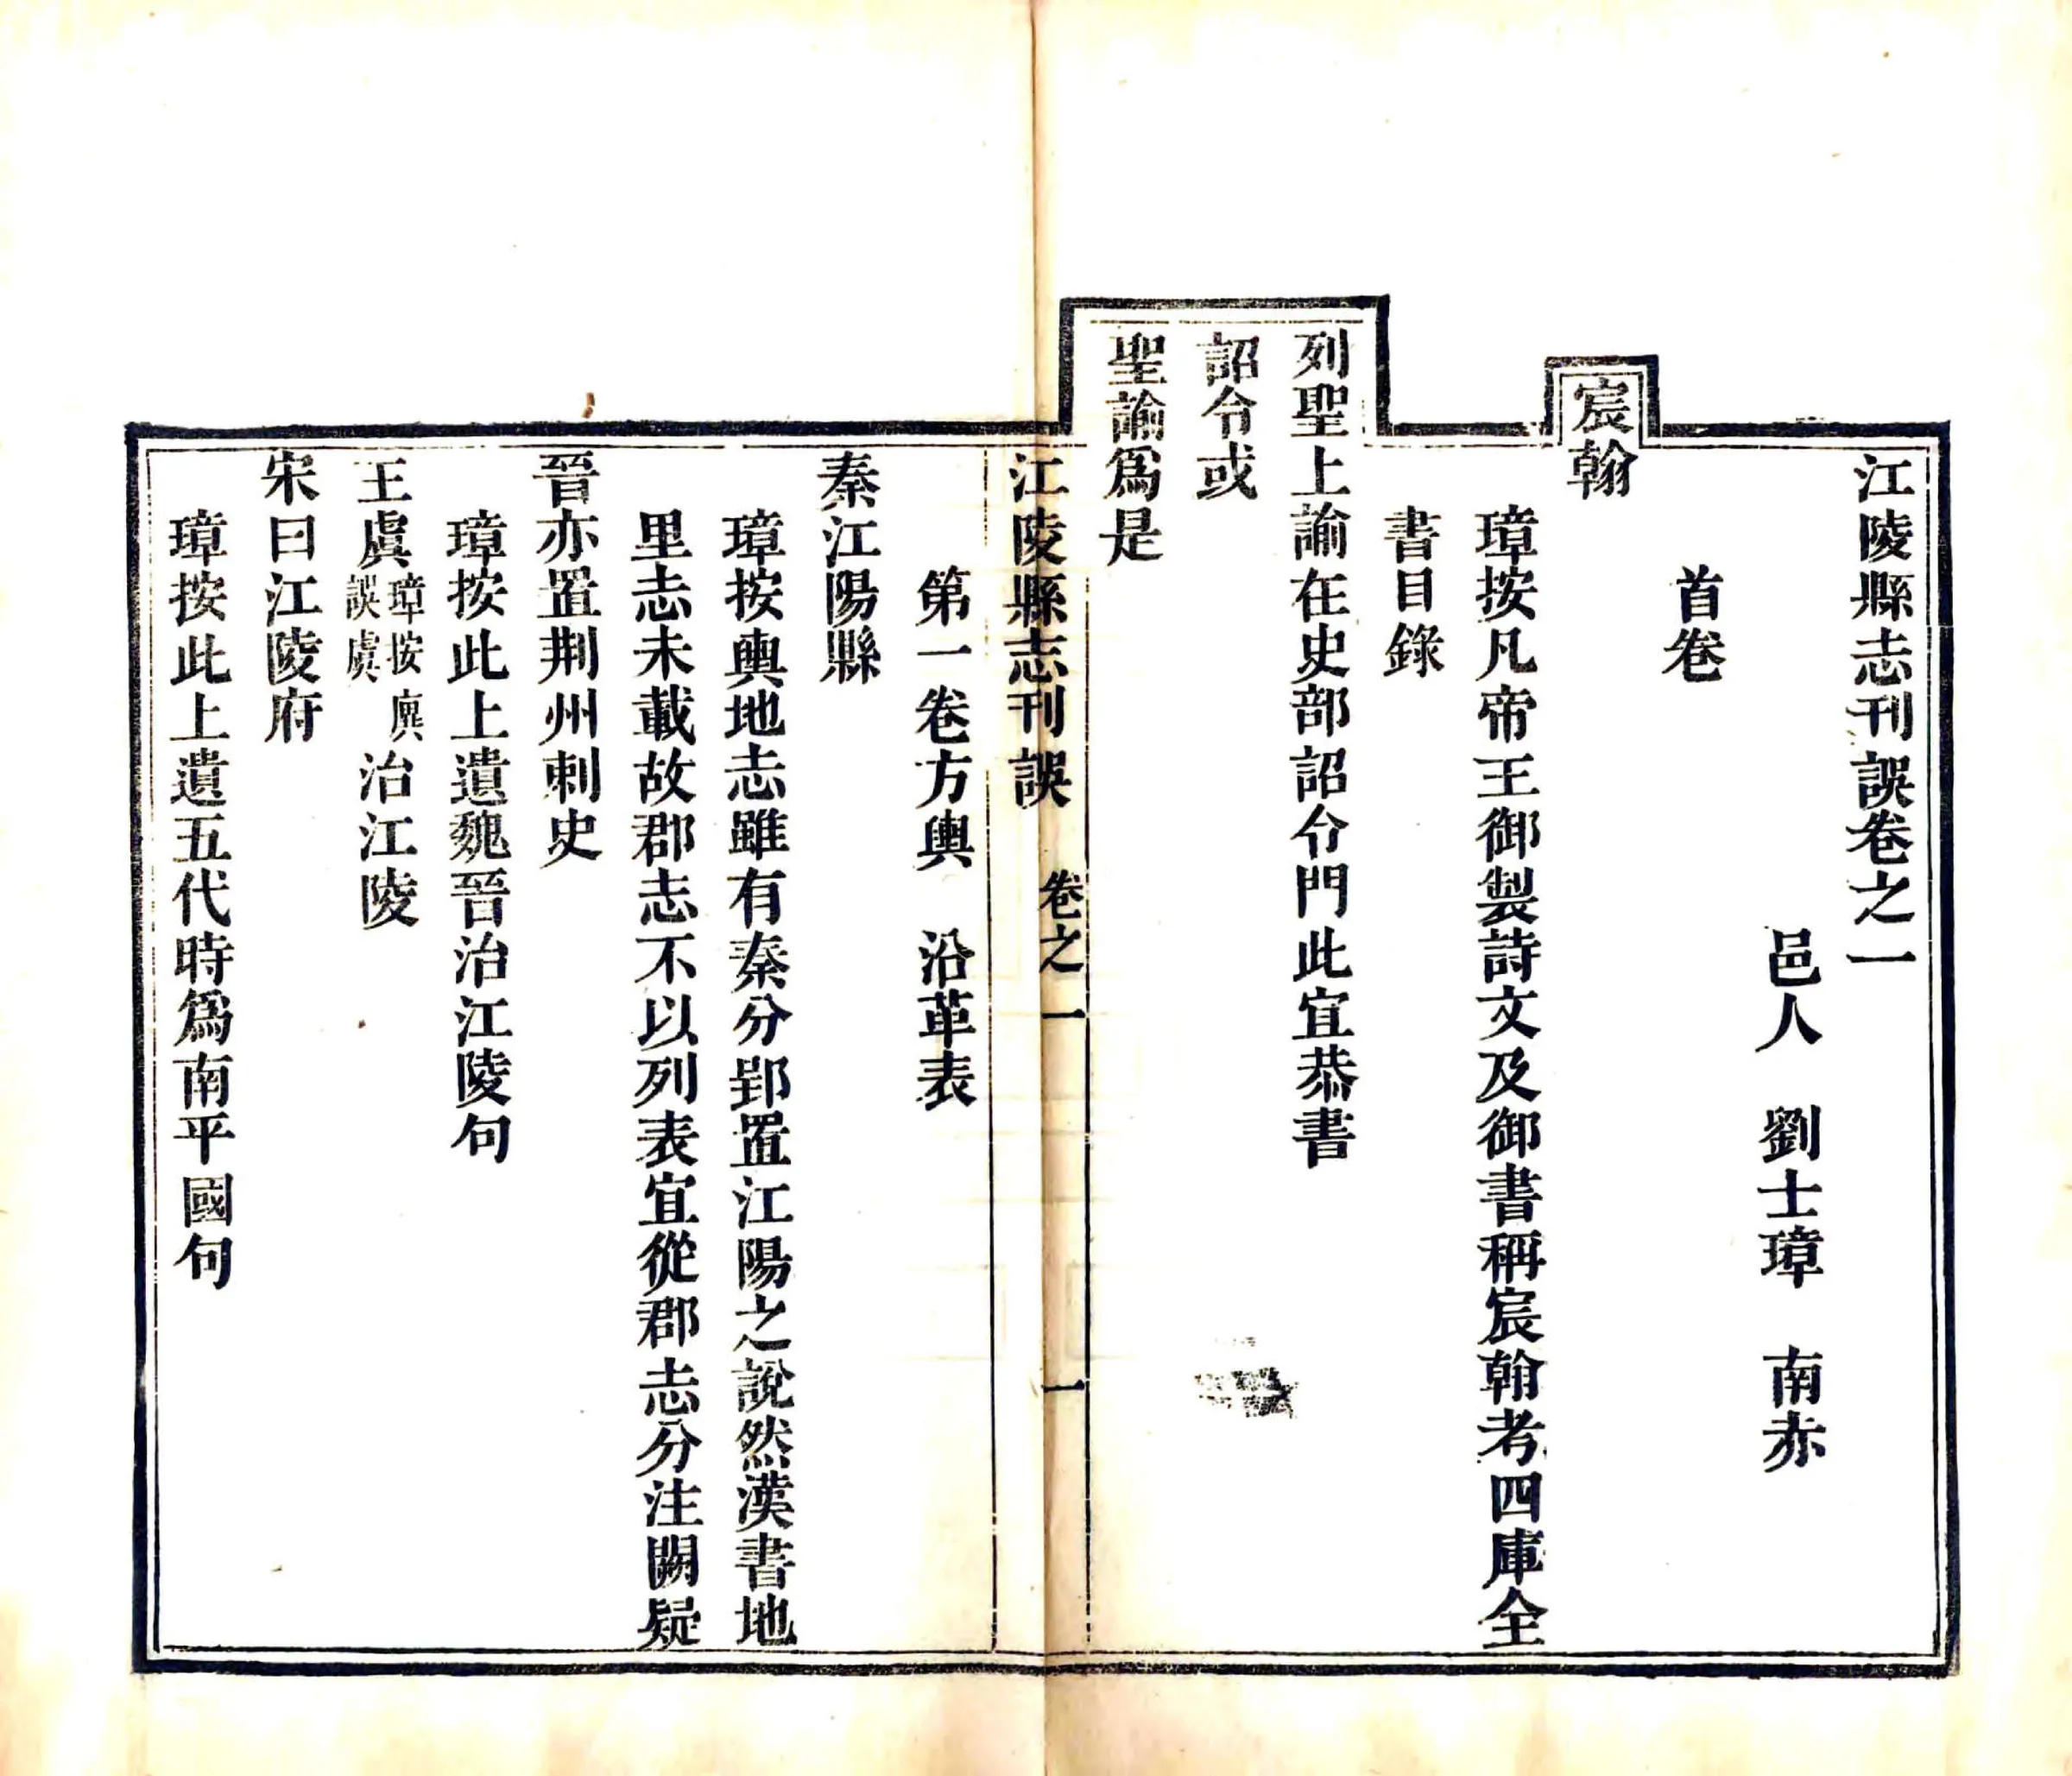 江陵縣志刊誤卷之一
邑人 劉士璋 南赤
首卷
宸翰
璋按凡帝王御製詩文及御書稱宸翰考四庫全
書目錄
列聖上諭在史部詔令門此宜恭書
詔令或
聖諭爲是
江陵縣志刊誤 卷之一 一
第一卷方輿 沿革表
秦江陽縣
璋按輿地志雖有秦分郢置江陽之說然漢書地
里志未載故郡志不以列表宜從郡志分注闕疑
晉亦置荆州刺史
璋按此上遺魏晉治江陵句
王虞璋按廙誤虞治江陵
宋曰江陵府
璋按此上遺五代時爲南平國句